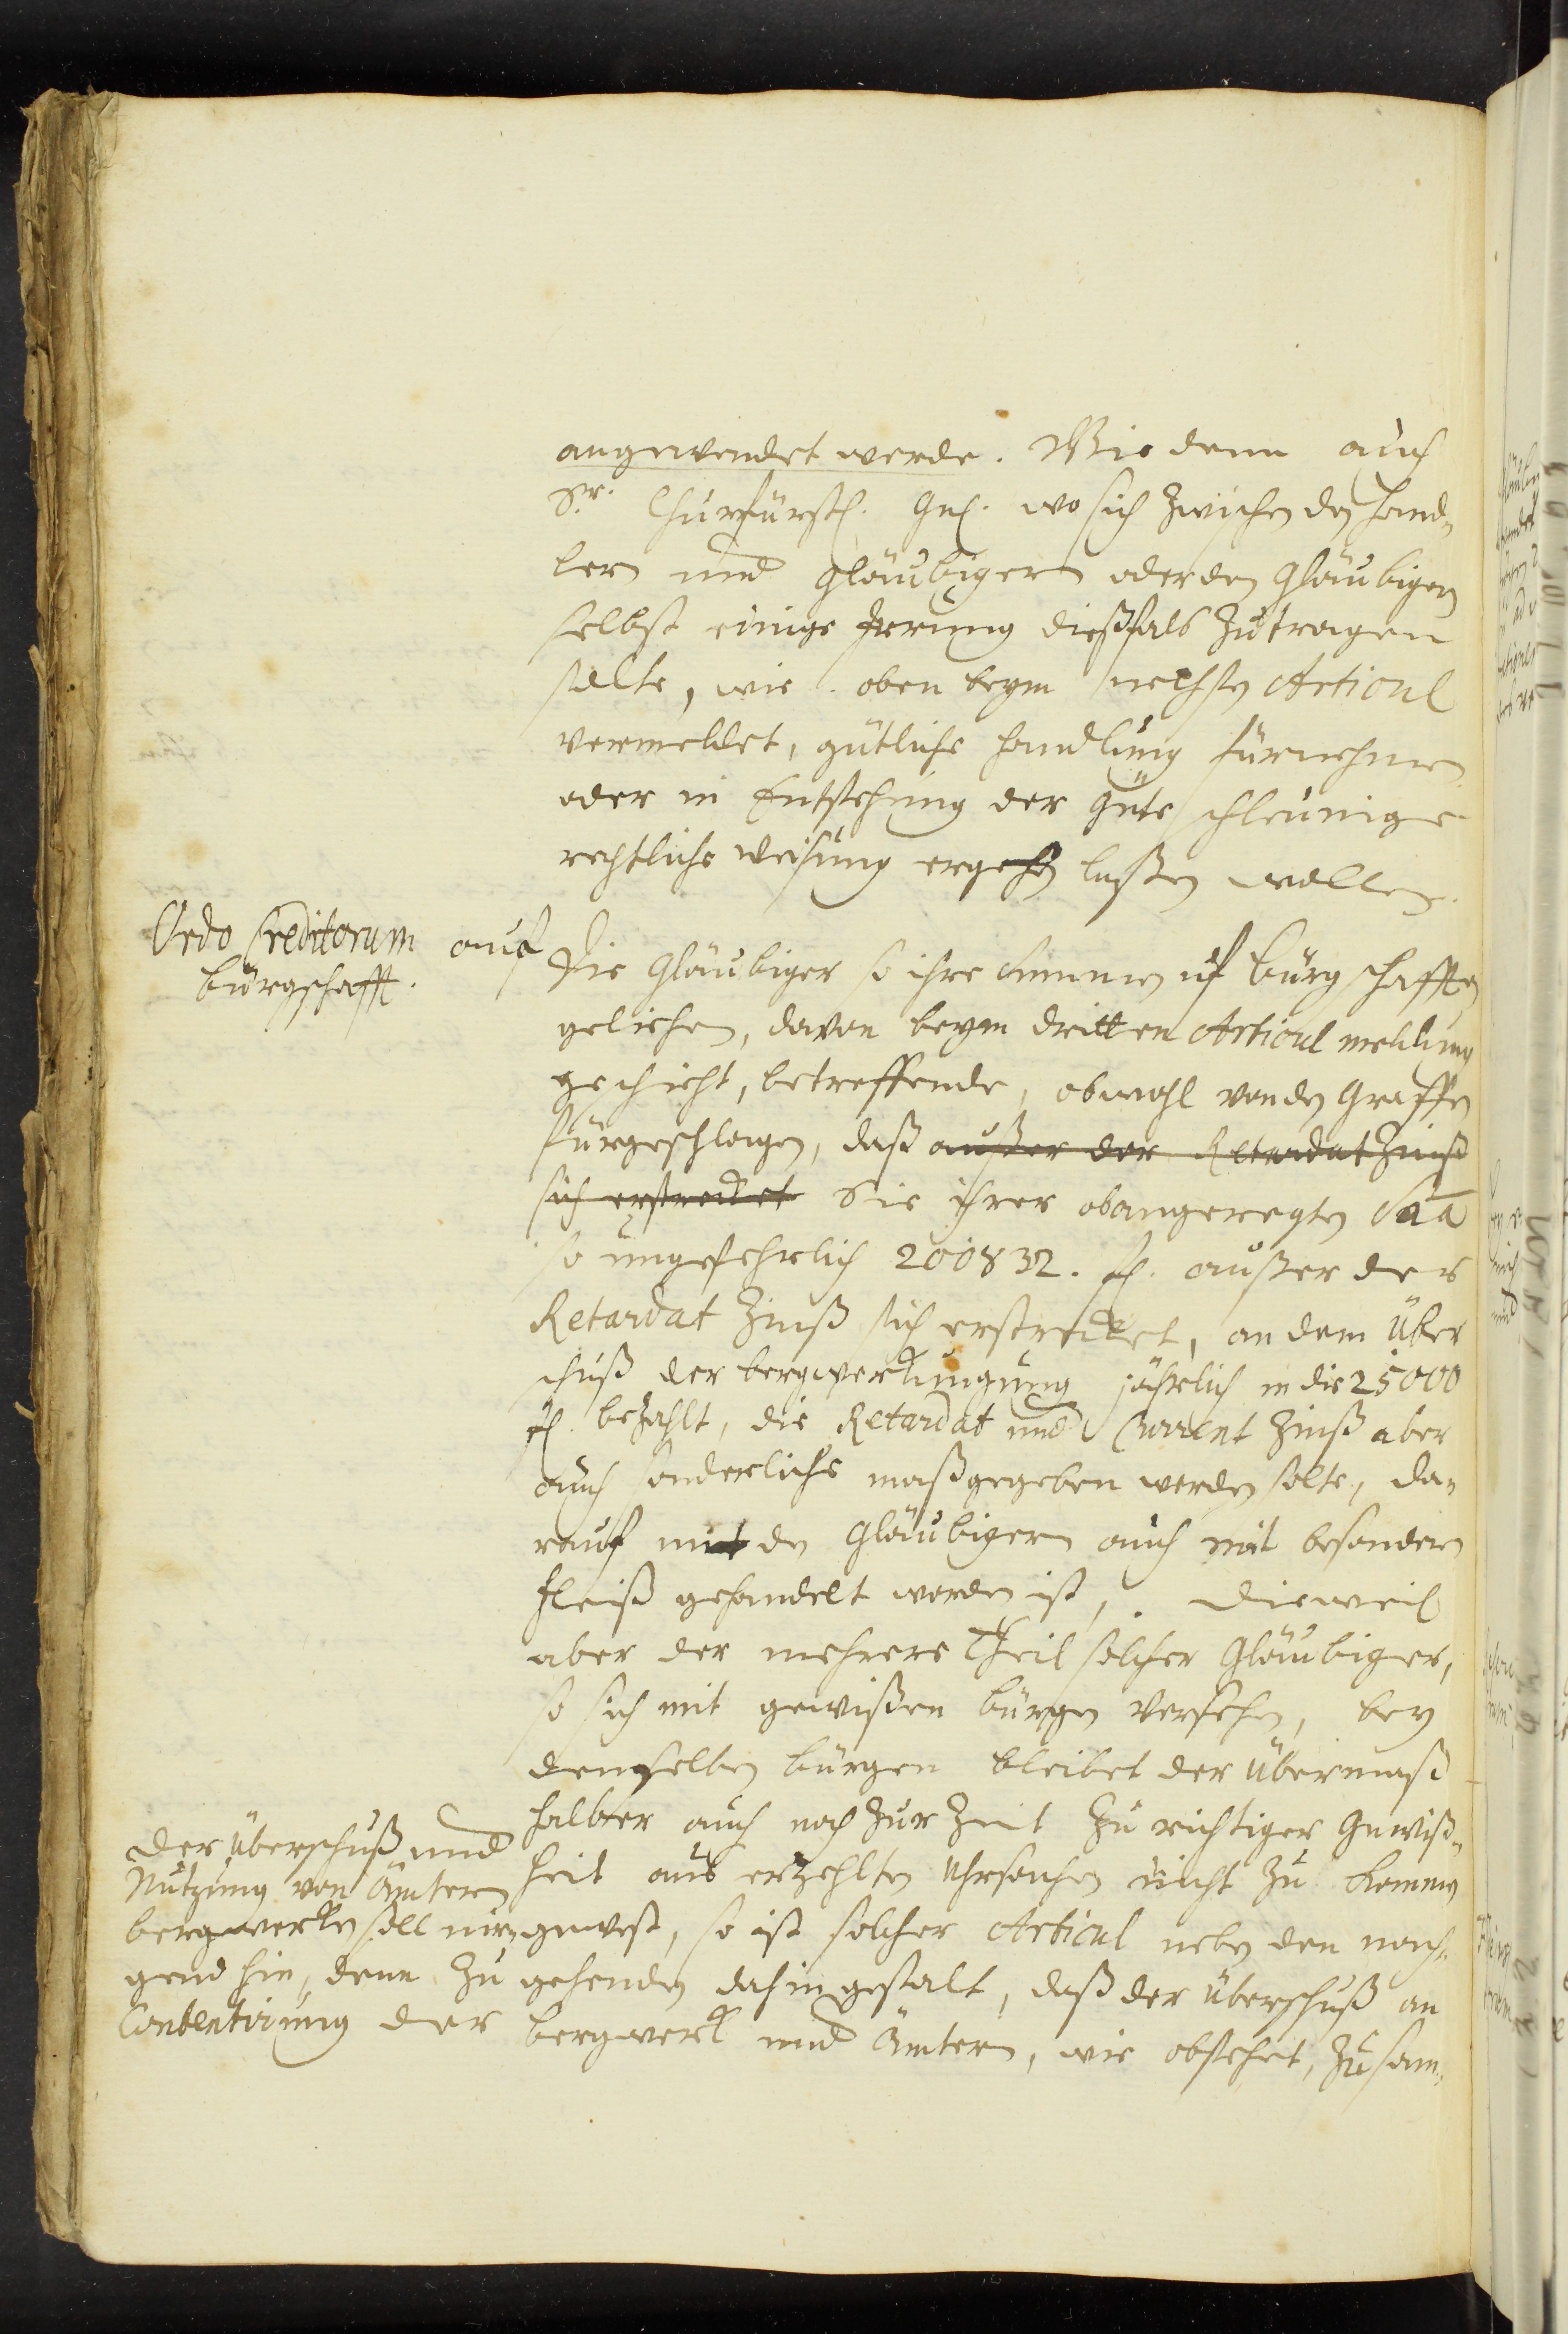 angewendet werde. Wie denn auch
Sr. Churfürstl. Gnl. wo sich zwischen den hand-
lern und Gläubigern oder den Gläubigern
selbst einige Irrung dießfals zutragen
solte, wie oben beym nechsten Articul
vermeldet, gütliche handlung fürnehmen
oder in Entstehung der Güte schleunige
rechtliche weisung ergehen laßen wollen.
Ordo Creditorum auf
bürgschafft.
Die Gläubiger so ihre Summen uf bürgschafften
geliehen, davon beym dritten Articul meldung
geschicht, betreffende, obwohl von den Graffen
fürgeschlagen, daß außer der Retardat Zinß
sich erstrecket Sie ihrer obangeregten Saa
so ungefehrlich 200832. fl. außer der
Retardat Zinß sich erstrecket, an dem Über
schuß der bergwerksnutzung jährlich in die 25000
fl. bezahlt, die Retardat und Current Zinß aber
auch sonderliche maß gegeben werden solte, da-
rauf mit den Gläubigern auch mit besondern
fleiß gehandelt worden ist, . Dieweil
aber der mehrere Theil solcher Gläubiger,
so sich mit gewißen bürgen versehen, bey
denselben bürgen bleibet der Übermaß
halber auch noch zur Zeit zu richtiger Gewiß-
heit aus erzehlten Uhrsachen nicht zu kommen
gewest, so ist solcher Articul neben den nach-
gehenden dahin gestalt, daß der Überschuß an
bergwerk und Ämtern, wie obstehet, zusam-
Der Überschuß und
Nutzung von Ämtern
bergwerken soll nir-
gend hin, denn zu
Contentirung der